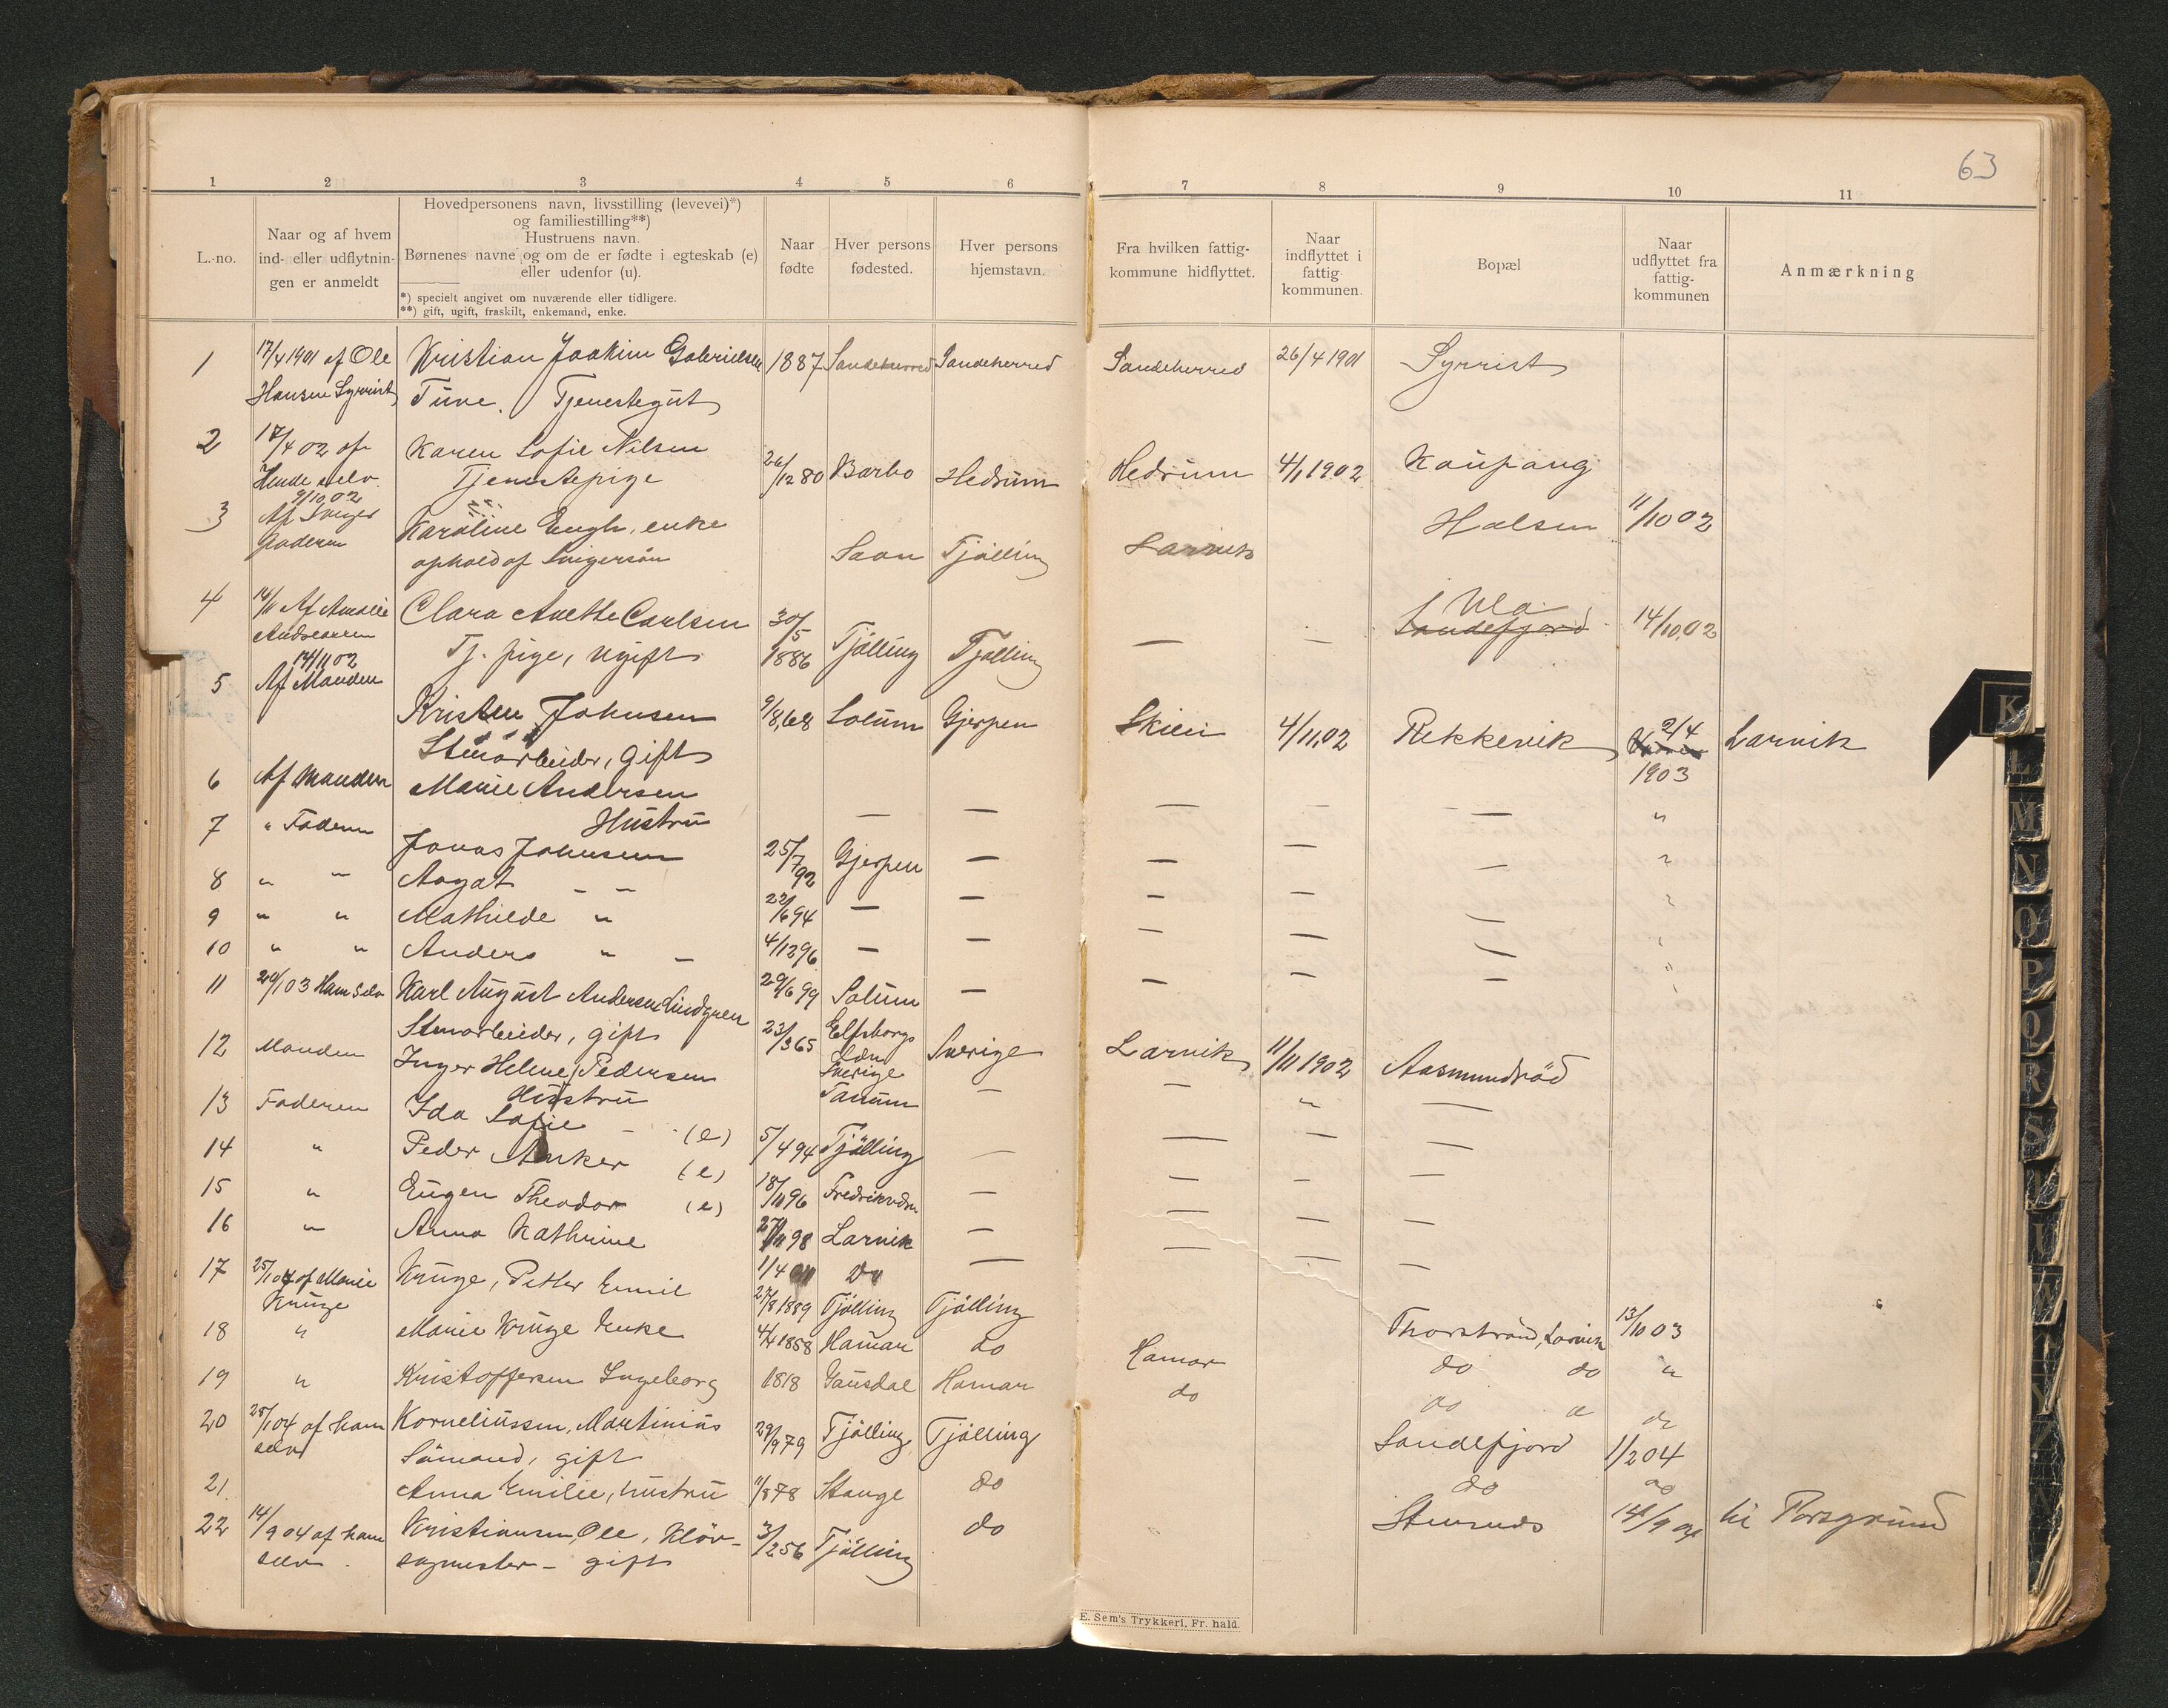 63
1 2 3 4 5 6 7 8 9 10 11
L.-no.
Naar og af hvem
ind- eller udflytnin-
gen er anmeldt
Hovedpersonens navn, livsstilling (levevei)*)
og familiestilling**)
Hustruens navn.
Børnenes navne og om de er fødte i egteskab (e)
eller udenfor (u).
*) specielt angivet om nuværende eller tidligere.
**) gift, ugift, fraskilt, enkemand, enke.
Naar
fødte
Hver persons
fødested.
Hver persons
hjemstavn.
Fra hvilken fattig-
kommune hidflyttet.
Naar
indflyttet i
fattig-
kommunen.
Bopæl
Naar
udflyttet fra
fattig-
kommunen
Anmærkning
1 17/4 1901 af Ole Kristian Joakim Gabrielsen 1887 Sandeherred Sandeherred Sandeherred 26/4 1901 Syrrist
Hansen Syrrist Tune. Tjenestegut
2 17/4 02 af Karen Sofie Nilsen
Hende selv Tjenestepige 26/12 80 Barbo Hedrum Hedrum 4/1 1902 Kaupang
9/10 02
3 Af Sviger Karoline Engh, enke Halsen 11/10 02
faderen ophold af Svigersøn Saon Tjølling Larvik
4 14/11 Af Amalie Clara Anette Carlsen 30/5 Ula
Andersen Tj. pige, ugift 1886 Tjølling Tjølling — — Sandefjord 14/10,02
14/11 02
5 Af Manden Kristen Johnsen 9/8,68 Solum Gjerpen Skien 4/11,02 Rekkevik 2/4 Larvik
Stenarbeider, gift 1903
6 Af Manden Marie Andersen
Hustru — — — — — "
7 " Faderen Jonas Johnsen 25/7 92 Gjerpen — — — — "
8 " " Aagot — — 22/6 94 — — — — — "
9 " " Mathilde " 4/12 96 — — — — — "
10 " " Anders " — 29/6 99 Solum — — — — "
11 29/1 03 Ham selv Karl August Andersen Lindgren
Stenarbeider, gift 23/3 65 Elfsborgs Sverige Larvik 11/11 1902 Aasmundrød
Län
Sverige
12 Manden Inger Helene Pedersen
Hustru Tanum — — " —
13 Faderen Ida Sofie — (e) 5/4 94 Tjølling — — — —
14 " Peder Anker (e) 18/11 96 Fredriksværn — — — —
15 " Eugen Theodor (e) 27/11 98 Larvik — — — —
16 " Anna Kathrine 1/4 01 Do — — — —
17 25/1 04 af Marie Kruge, Petter Emil 27/8 1889 Tjølling Tjølling Thorstrand, Larvik 13/10 03
Kruge
18 " Marie Kruge Enke 4/4 1858 Hamar do Hamar do do "
19 " Kristoffersen Ingeborg 1818 Gausdal Hamar do do do do
20 25/1 04 af ham Korneliussen, Martinius 29/9 79 Tjølling Tjølling Sandefjord 1/2 04
selv Sømand, gift
21 Anna Emilie, hustru 11/8 78 Stange do do do
22 14/9 04 af ham Kristiansen, Ole, Kløv- 3/2 56 Tjølling do 14/9 04 til Porsgrund
selv sagmester - gift
E. Sem's Trykkeri, Fr. hald.
K
L
M
N
O
P
Q
R
S
T
U